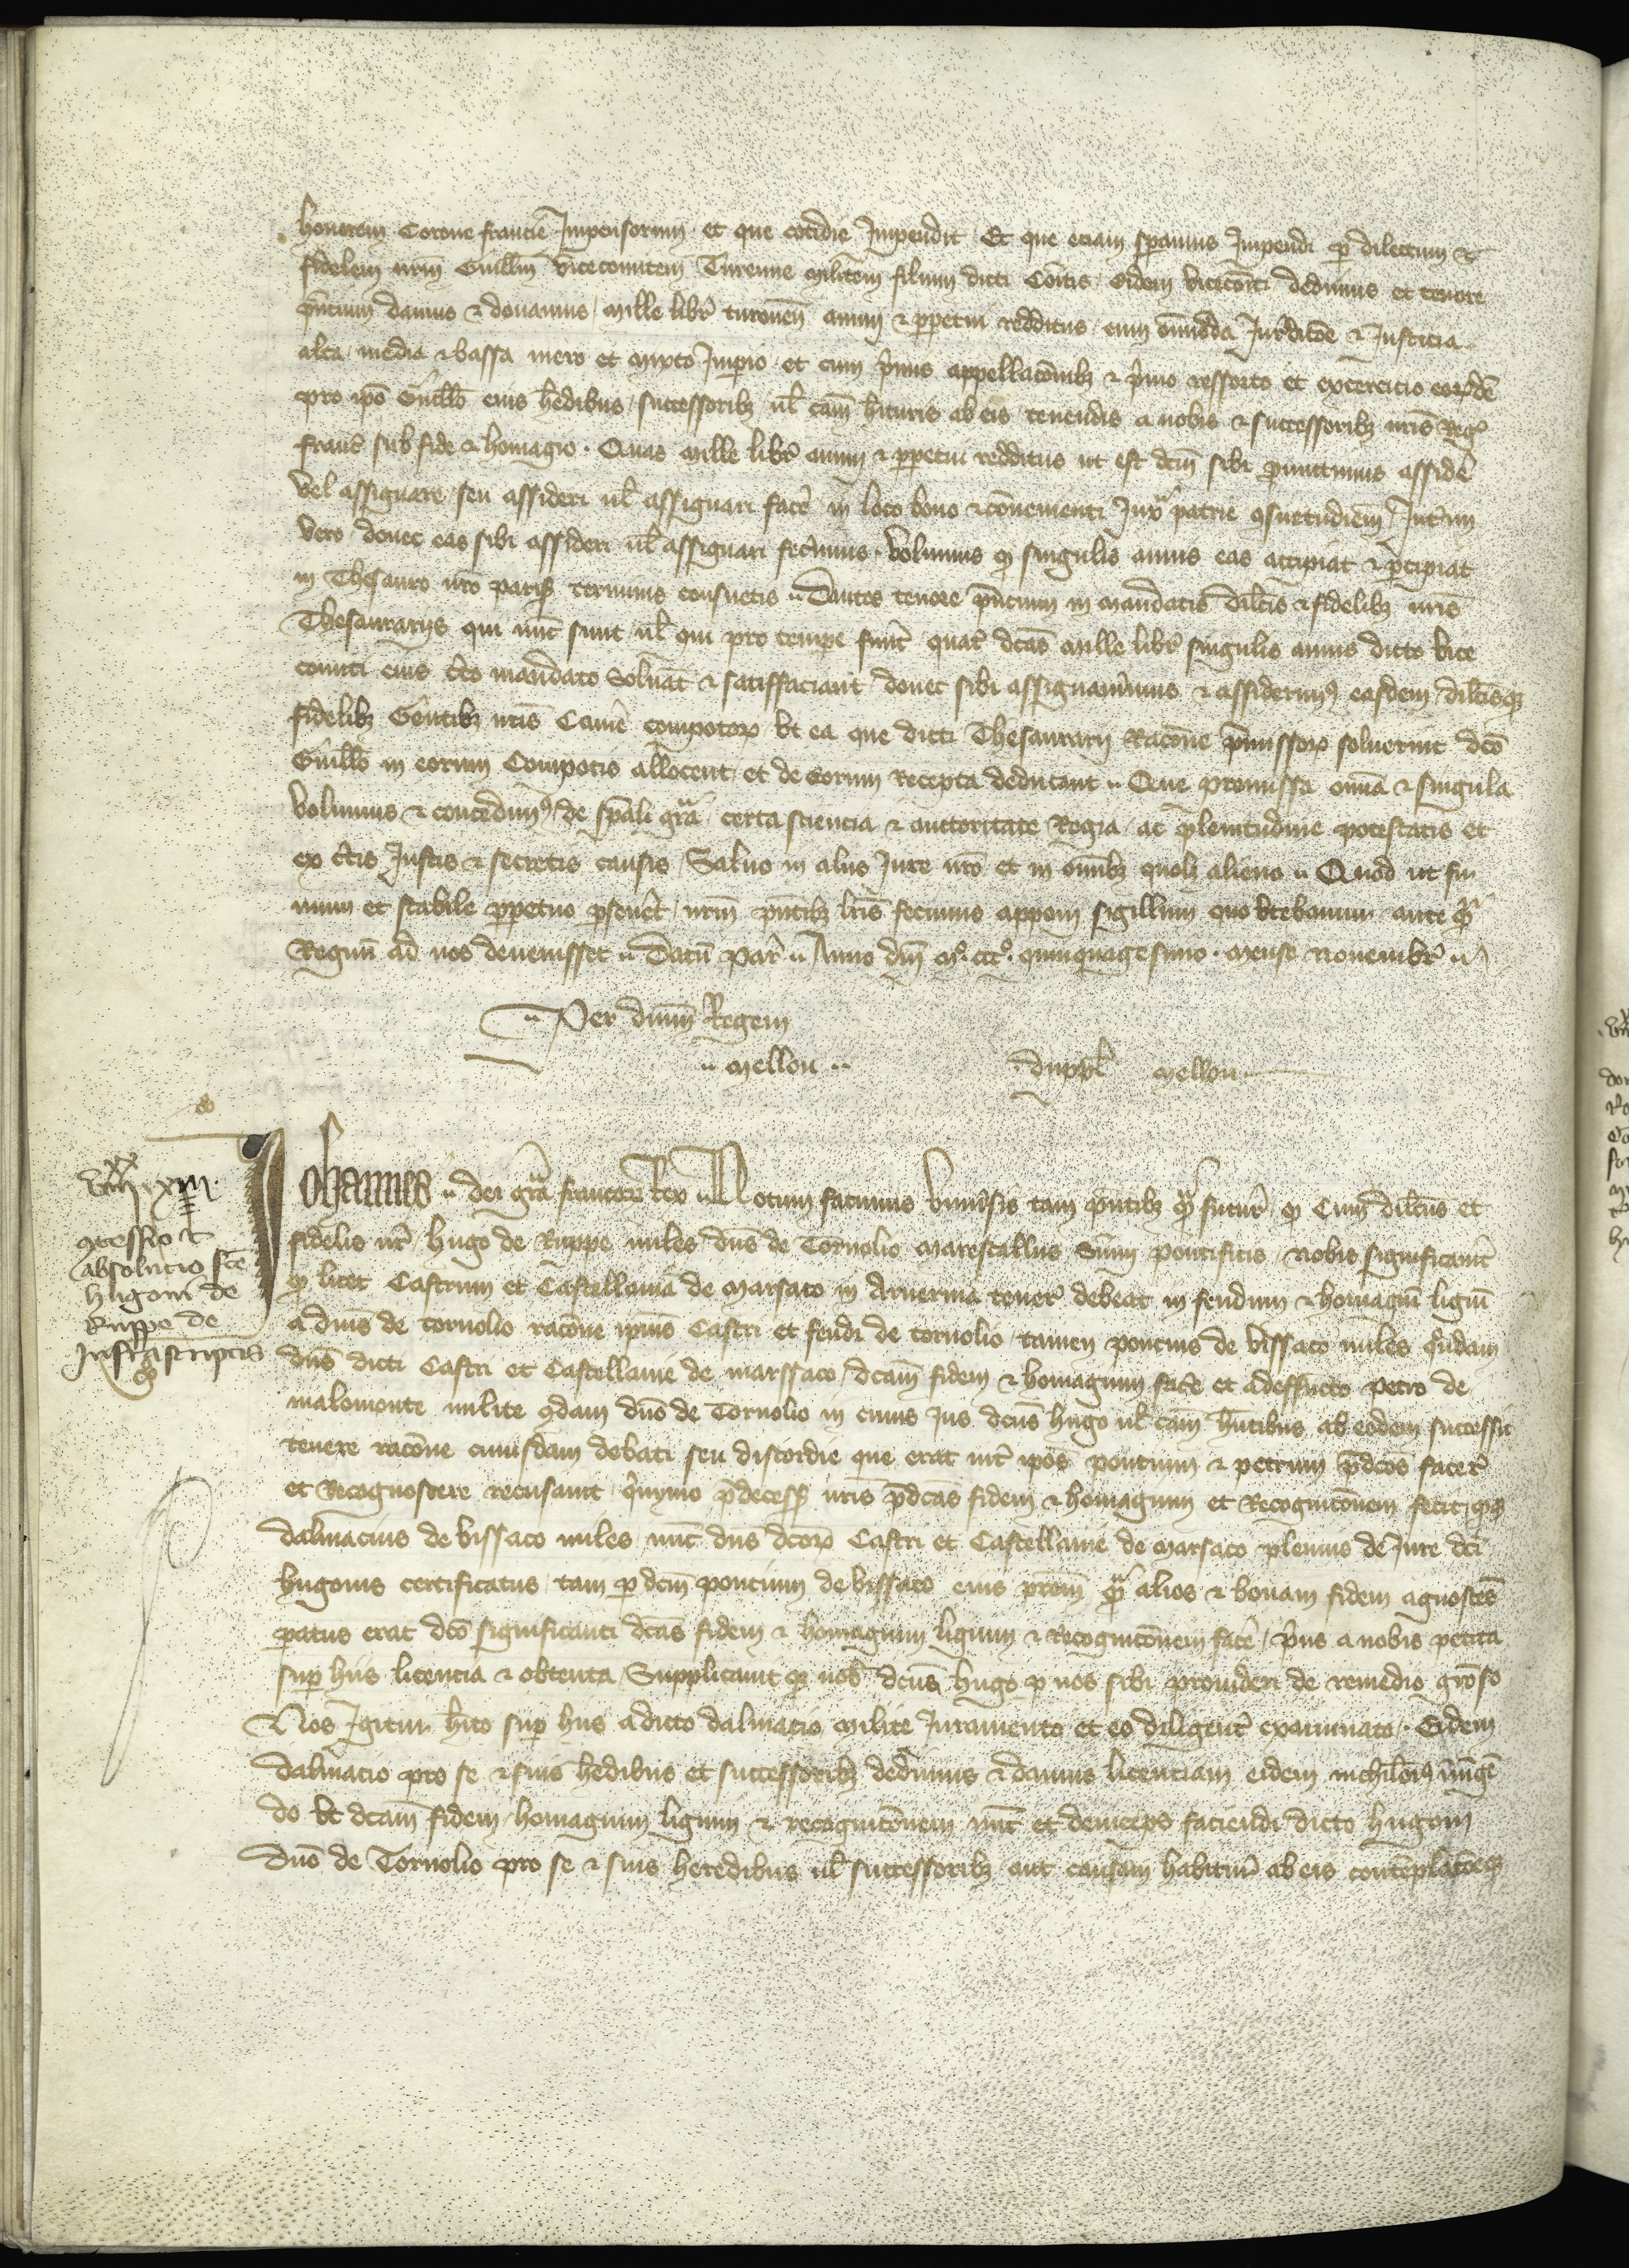 honorem Corone francie Impensorum et que cotidie Impendit Et que eciam speramus Impendi per dilectum &
fidelem nrm Guillm vicecomitem Turenne militem filium dicti Comitis eidem viceconti dedimus et tenore
pntium damus & donamus mille libr turonen annui & perpetui redditus cum omnioda Jurdicoe & Justicia
alta media & bassa mero et mixto Imperio et cum primis appellacoibz & primo ressorto et exercicio eordem
pro ipo Guillo eius hedibus successoribz ul cam hituris ab eis tenendis a nobis & successoribz nris Reg
franc sub fide & homagio . Quas mille libr annui & perpetui redditus ut est dcm sibi promittimus assidere
vel assignare seu assideri ul assignari facere in loco bono & convenienti Juxta patrie consuetudiem Interim
vero donec eas sibi assideri ul assignari fecerimus . volumus quod singulis annis eas accipiat & percipiat
in Thesauro nro paris terminis consuetis Dantes tenore pntium in mandatis dilcis & fidelibz nris
Thesaurariis qui nunc sunt ul qui pro tempore fuerint quatenus dcas mille libr singulis annis dicto vice
comiti eius certo mandato solvant & satisffaciant donec sibi assignaverimus & assiderimus easdem dilcisque
fidelibz Gentibz nris Camere compotorum ut ea que dicti Thesaurarii Racone premissorum solverint dco
Guillo in eorum Compotis allocent et de eorum Recepta deducant Que premissa omnia & singula
volumus & concedimus de speali gra certa sciencia & auctoritate Regia ac plenitudine potestatis et
ex certis Justis & secretis causis Salvo in aliis Jure nro et in omnibz quolibet alieno Quod ut fir
mum et stabile perpetuo perseveret nrm pntibz lris fecimus apponi sigillum quo utebamur ante quam
Regnum ad nos devenisset Datum par Anno dni M°. ccc°. quinquagesimo . mense novembr
Per dnm Regem
mellon duppl mellon
viii xx xiii
concessio &
absolucio fce
hugoni de
Ruppe de
Infrascriptis
Johannes dei gra francorum Rex Notum facimus universis tam pntibz quam futur quod Cum dilcus et
fidelis nr hugo de Ruppe miles dns de Tornolio marescallus Summi pontificis nobis significaverit
quod licet Castrum et Castellania de Marsaco in Arvernia teneri debeat in feudum & homagium ligium
a dnis de tornolio racone ipius Castri et feudi de tornolio tamen poncius de vissaco miles quondam
dns dicti Castri et Castellanie de marssaco dcam fidem & homagium facere et adessucto petro de
malomonte milite condam dno de Tornolio in cuius Jus dcus hugo ul cam hntibus ab eodem successit
tenere racone cuiusdam debati seu discordie que erat inter ipos poncium & petrum pdcos facere
et Recognoscere recusavit quinymo predecess nris pdcas fidem & homagium et Recognicoem fecit quodque
dalmacius de vissaco miles nunc dns dcorum Castri et Castellanie de marsaco plenius de Jure dci
hugonis certificatus tam per dcm poncium de vissaco eius prem quam alios & bonam fidem agnoscens
paratus erat dco significanti dcas fidem & homagium ligium & Recognicoem facere prius a nobis petita
super hiis licencia & obtenta Supplicavit que nob dcus hugo per nos sibi provideri de remedio groso
Nos Igitur hito super hiis a dicto dalmacio milite Juramento et eo diligenter examinato . Eidem
dalmacio pro se & suis hedibus et successoribz dedimus & damus licenciam eidem nichilominus iniungen
do ut dcam fidem homagium ligium & recognicoem nunc et deinceps faciendi dicto hugoni
dno de Tornolio pro se & suis heredibus ul successoribz aut causam habitur ab eis contemplacoeque